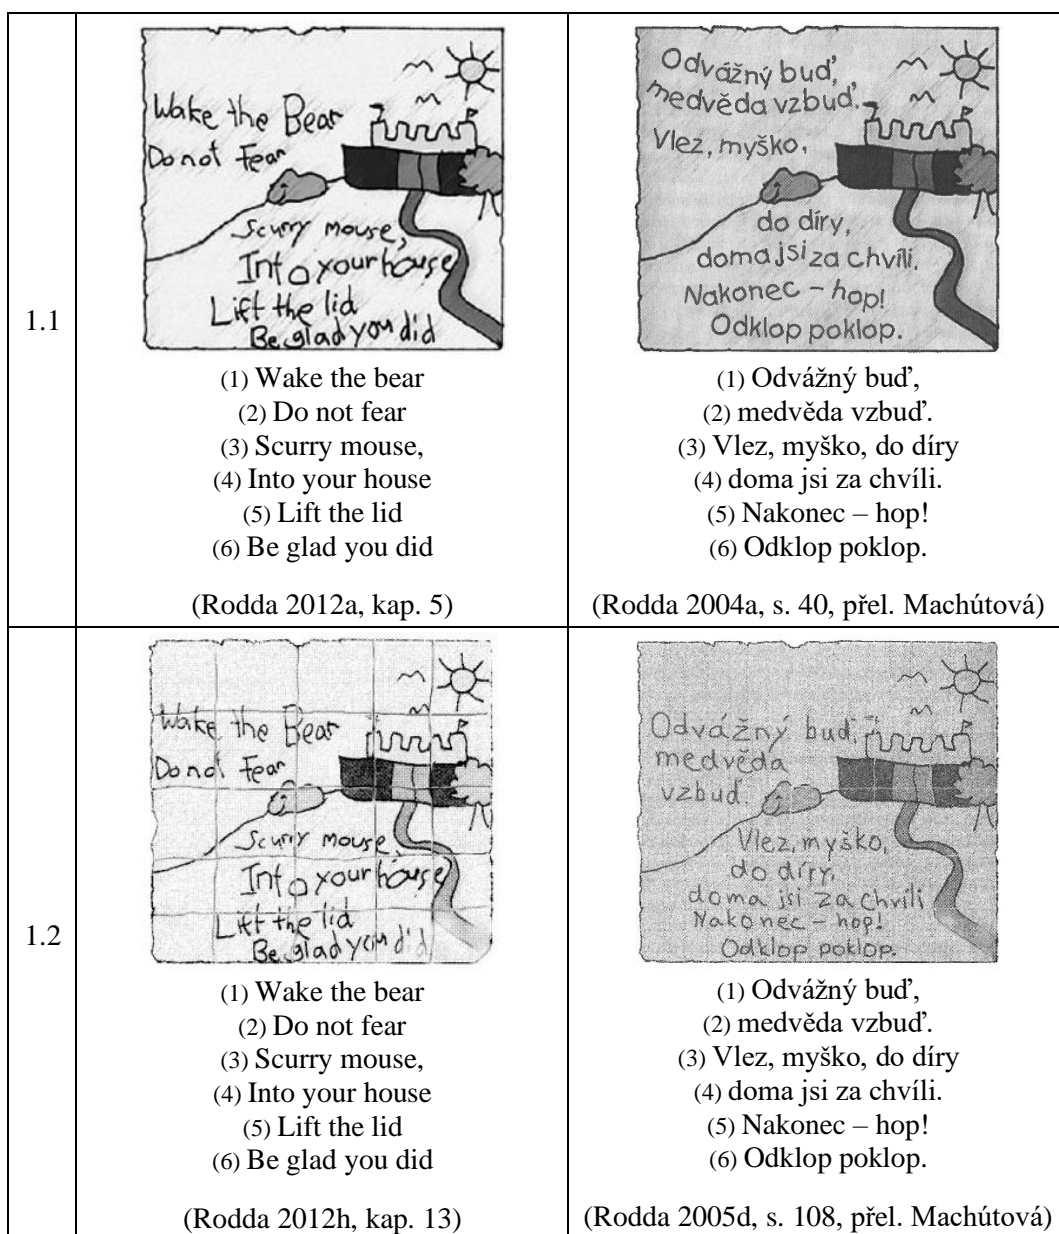 1.1
Wake the Bear
Do not Fear
Scurry mouse,
Into your house
Lift the lid
Be glad you did
(1) Wake the bear
(2) Do not fear
(3) Scurry mouse,
(4) Into your house
(5) Lift the lid
(6) Be glad you did
(Rodda 2012a, kap. 5)
Odvážný buď,
medvěda vzbuď.
Vlez, myško,
do díry,
doma jsi za chvíli.
Nakonec – hop!
Odklop poklop.
(1) Odvážný buď,
(2) medvěda vzbuď.
(3) Vlez, myško, do díry
(4) doma jsi za chvíli.
(5) Nakonec – hop!
(6) Odklop poklop.
(Rodda 2004a, s. 40, přel. Machútová)
1.2
Wake the Bear
Do not Fear
Scurry mouse,
Into your house
Lift the lid
Be glad you did
(1) Wake the bear
(2) Do not fear
(3) Scurry mouse,
(4) Into your house
(5) Lift the lid
(6) Be glad you did
(Rodda 2012h, kap. 13)
Odvážný buď,
medvěda
vzbuď.
Vlez, myško,
do díry,
doma jsi za chvíli
Nakonec – hop!
Odklop poklop.
(1) Odvážný buď,
(2) medvěda vzbuď.
(3) Vlez, myško, do díry
(4) doma jsi za chvíli.
(5) Nakonec – hop!
(6) Odklop poklop.
(Rodda 2005d, s. 108, přel. Machútová)